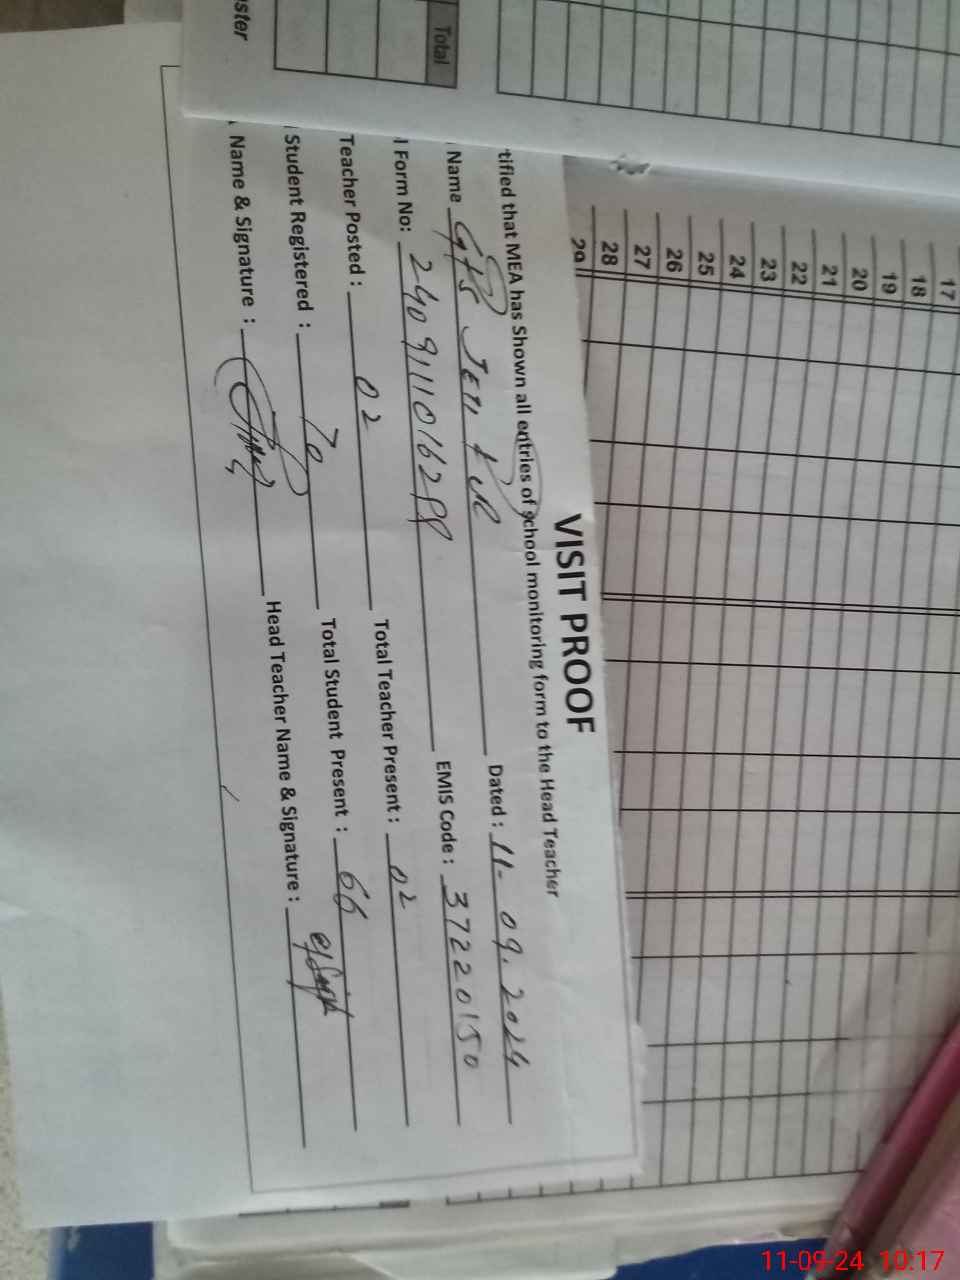 VISIT PROOF
tified that MEA has Shown all entries of school monitoring form to the Head Teacher
Name GPS Dated : 11-09-2024
l Form No: 2409111016288 EMIS Code : 37220150
Teacher Posted : 02 Total Teacher Present : 02
Student Registered : 70 Total Student Present : 66
Name & Signature : Head Teacher Name & Signature :
ster
Total
17
18
19
20
21
22
23
24
25
26
27
28
29
11-09-24 10:17